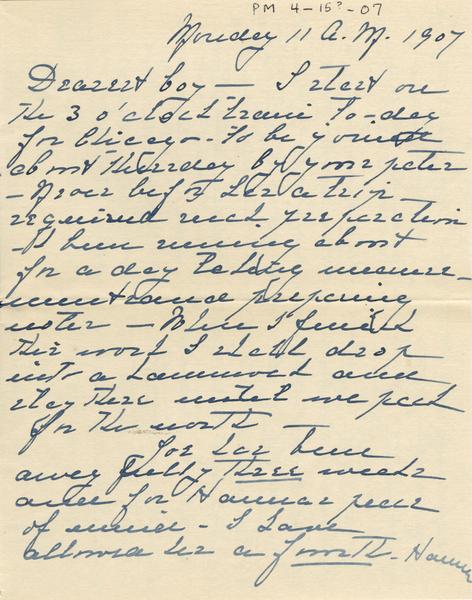 PM 4-15?-07
Monday 11 A.M. 1907
Dearest boy — I start on
the 3 o'clock train To-day
for Chicago - to be joined
about Thursday by your pater
- Never before has a trip
required such preparation
- I been running about
for a day taking measure-
ments and preparing
notes — When I finish
this work I shall drop
into a hammock and
stay there until we pack
for the north —
Joe has been
away fully three weeks
and for Hannas peace
of mind - I have
allowed her a fourth - Hanna